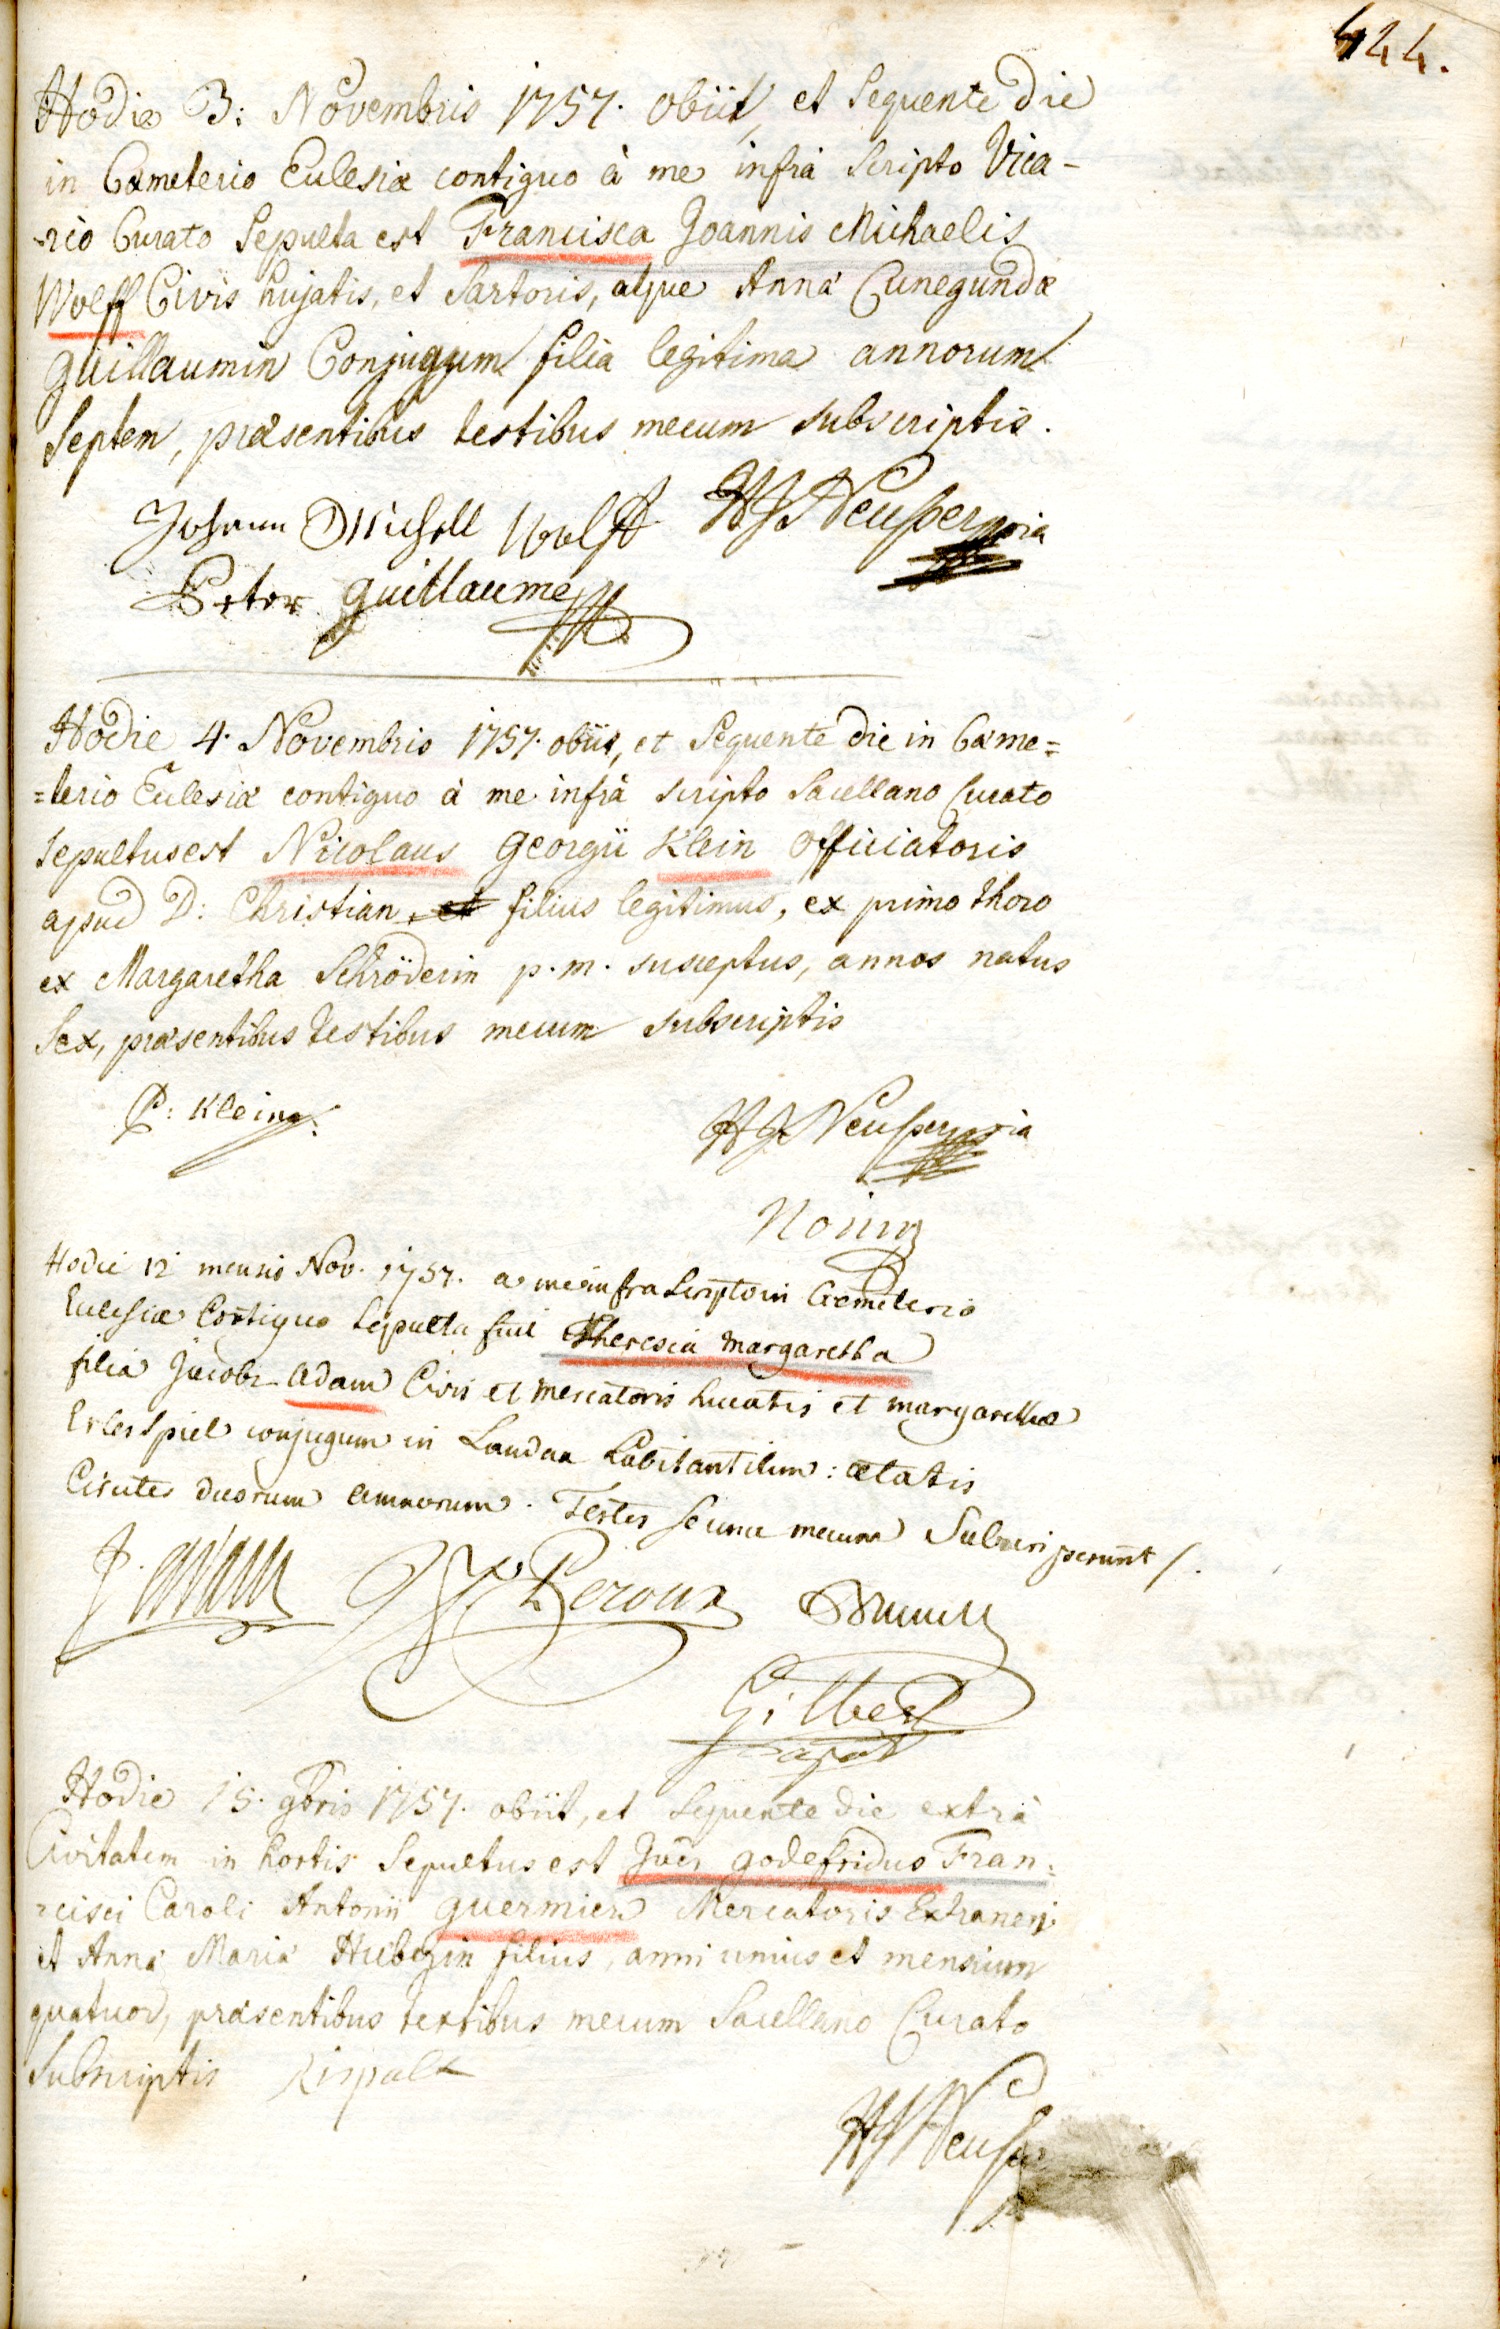 424.
Hodie 3: Novembris 1757. obiit, et sequente die
in Cæmeterio Eclesiæ contiguo à me infrà scripto Vica-
-rio Curato sepulta est Francisca Joannis Michaelis
Wolff Civis hujatis, et sartoris, atque Annæ Cunegundæ
guillaumin Conjugum filia legitima annorum
septem, præsentibus testibus mecum subscriptis.
Johann Michell Wolff HJ Neusper
Peter guillaume
Hodie 4. Novembris 1757. obiit, et sequente die in Cæme=
=terio Eclesiæ contiguo à me infrà scripto sacellano Curato
sepultus est Nicolaus Georgii Klein officiatoris
apud D: Christian, et filius legitimus, ex primo thoro
ex Margaretha Schröderin p.m. susceptus, annos natus
sex, præsentibus testibus mecum subscriptis
P: Klein HJ Neusper
Hodie 12 mensis Nov. 1757. a me infra scripto in Cæmeterio
Eclesiæ Contiguo sepulta fuit Theresia margaretha
filia Jacobi adam Civis et mercatoris hujatis et margarethæ
Erlesspiel conjugum in Landau habitantium: ætatis
Circiter duorum annorum. Testes mecum Subscripserunt /.
J. adam Leroux
Gilbert
Hodie 15. 9bris 1757. obiit, et sequente die extrà
Civitatem in hortis sepultus est Joës godefridus Fran:
=cisci Caroli Antonii guermien Mercatoris Extranei
et Annæ Mariæ filius, anni unius et mensium
quatuor, præsentibus testibus mecum sacellano Curato
subscriptis
HJ Neusper